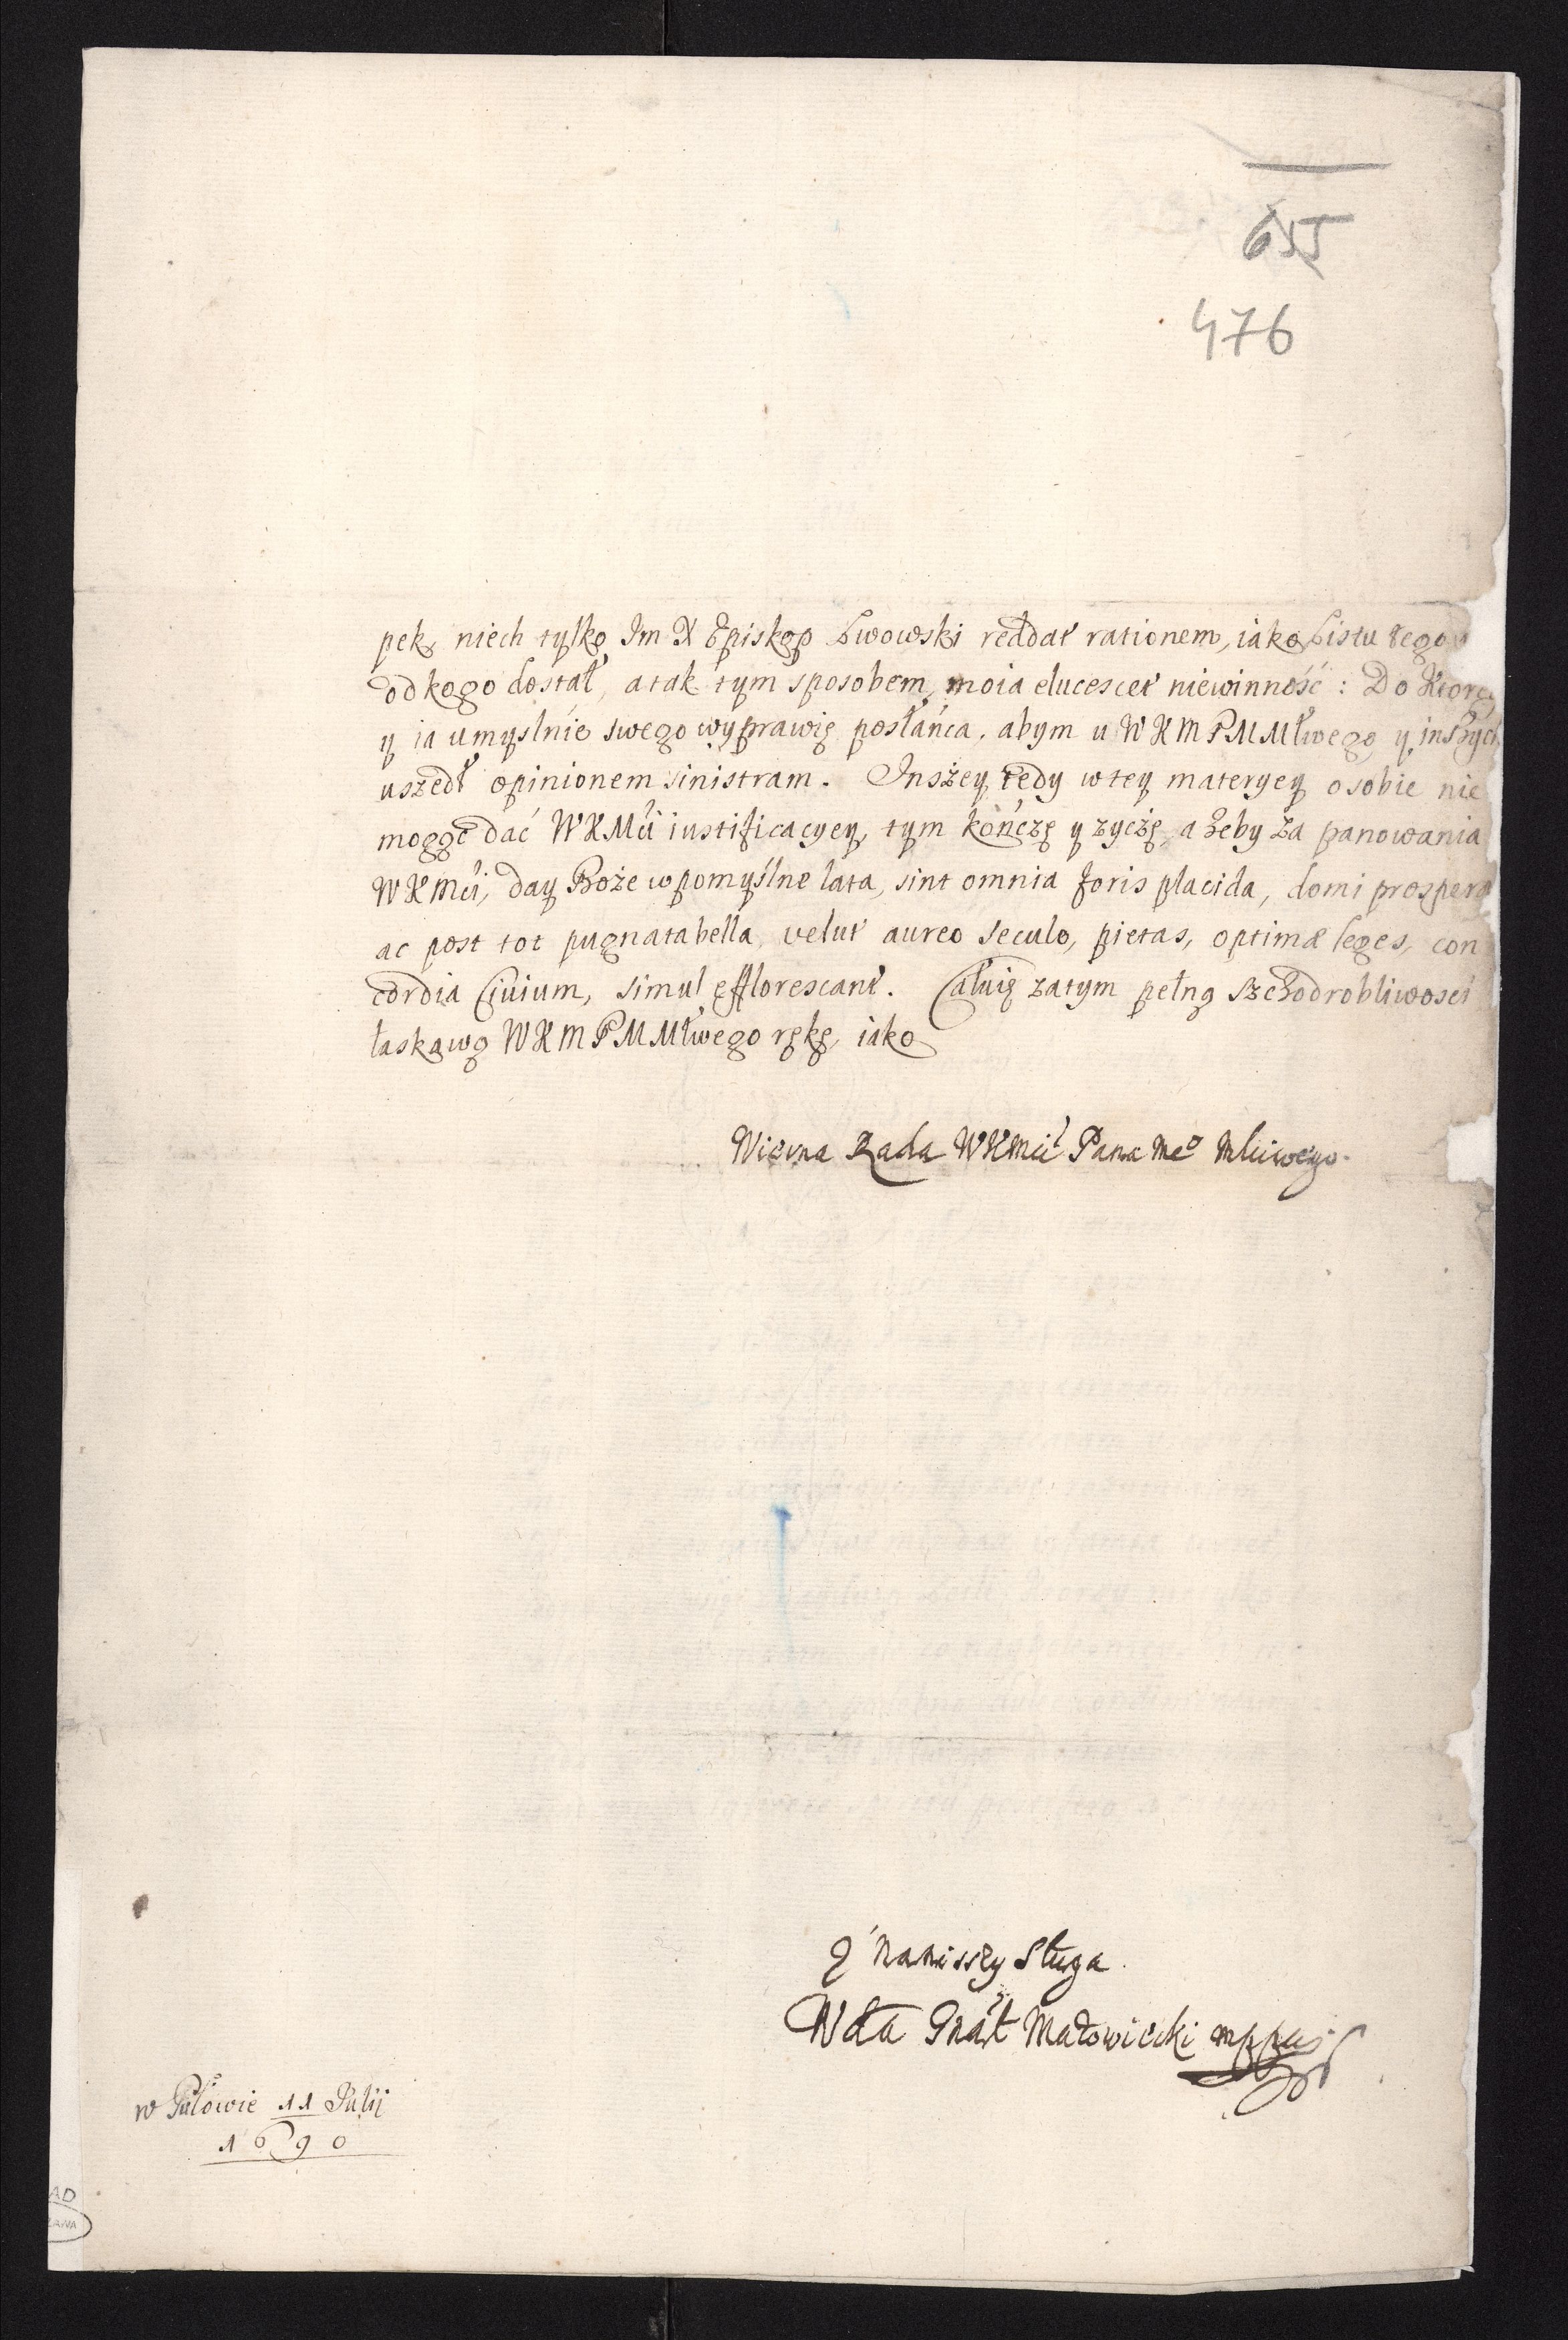 655
476
pek, niech tylko Im X Episkop Lwowski reddat rationem, iako Listu tego
od kogo dostał, a tak tym sposobem, moia elucescet niewinność: Do Ktorego
y ia umyslnie swego wyprawię posłańca, abym u WKM PM Młwego, y inszych
uszedł opinionem sinistram. Inszey tedy w tey materyey o sobie nie
moggę dać WKMći iustificacyey, tym kończę y zyczę, a żeby za panowania
WKMći, day Boże w pomyślne lata, sint omnia foris placida, domi prospera
ac post tot pugnata bella, velut aureo seculo, pietas, optimæ leges, con
cordia Civium, simul efflorescant. Całuię zatym pełną szchodrobliwosci
łaskawą WKM PM Młwego rękę, iako
Wierna Rada WKMći Pana Meo Młciwego.
Y Naniszszy Sługa.
Matowiecki mppus
w 11 Julij
1690
AD